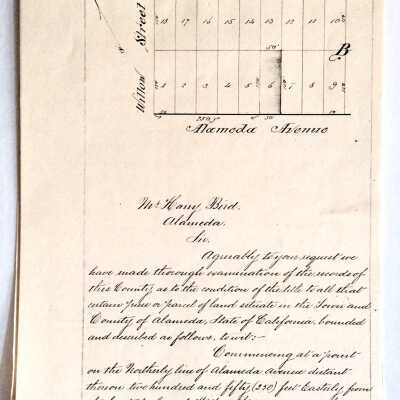 18 17 16 15 14 13 12 11 10
Willow Street
50'
B
1 2 3 4 5 6 7 8 9
250' 50
Alameda Avenue
Mr Harry Bird.
Alameda.
Sir.
Agreeably to your request we
have made thorough examination of the records of
this County as to the condition of the title to all that
certain piece or parcel of land situate in the Town and
County of Alameda, State of California, bounded
and described as follows, to wit:-
Commencing at a point
on the Northerly line of Alameda avenue distant
thereon two hundred and fifty (250) feet Easterly from